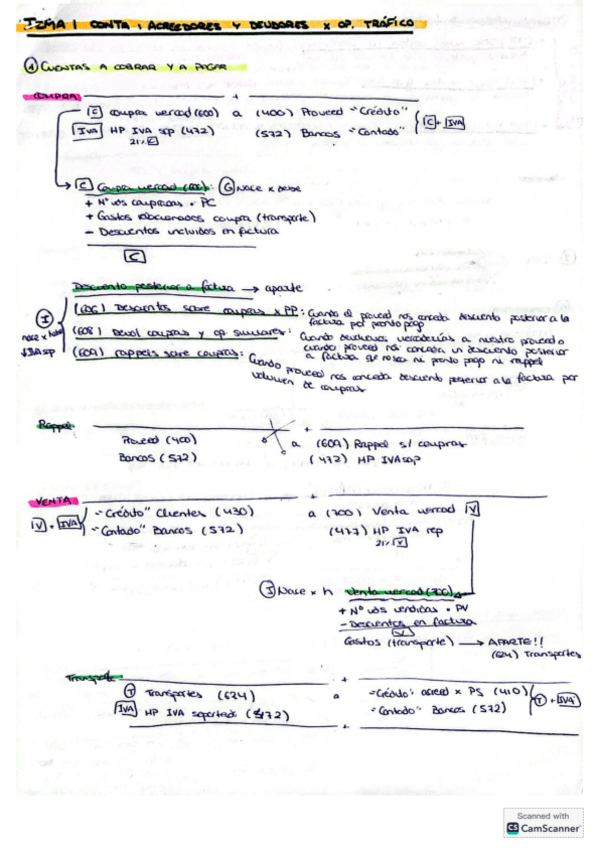 TEMA 1 CONTA : ACREEDORES Y DEUDORES X OP. TRÁFICO
① CUENTAS A COBRAR Y A PAGAR
COMPRA
C compra mercad (600) a (400) Proveed "Crédito"
IVA HP IVA sop (472) (572) Bancos "Contado" C + IVA
21% C
C Compra mercad (600): G Nace x debe
+ Nº uds compradas · PC
+ Gastos relacionados compra (transporte)
- Descuentos incluidos en factura
C
Descuento posterior a factura → aparte
I
nace x haber
↓ IVA sop
(606) Descuentos sobre compras x PP: Cuando el proveed nos conceda descuento posterior a la
factura por pronto pago
(608) Devol compras y op similares: Cuando devolvemos mercaderías a nuestro proveed o
cuando proveed nos conceda un descuento posterior
a factura que no sea ni pronto pago ni rappel
(609) rappels sobre compras: Cuando proveed nos conceda descuento posterior a la factura por
volumen de compras
Rappel
Proveed (400) a (609) Rappel s/ compras
Bancos (572) (472) HP IVA sop
VENTA
V + IVA "Crédito" Clientes (430) a (700) Venta mercad V
"Contado" Bancos (572) (477) HP IVA rep
21% V
I Nace x h Venta mercad (700)
+ Nº uds vendidas · PV
- Descuentos en factura
V
Gastos (transporte) → APARTE!!
(624) Transportes
Transporte
T Transportes (624) a "Crédito" acreed x PS (410) T + IVA
IVA HP IVA soportado (472) "Contado" Bancos (572)
Scanned with
CS CamScanner